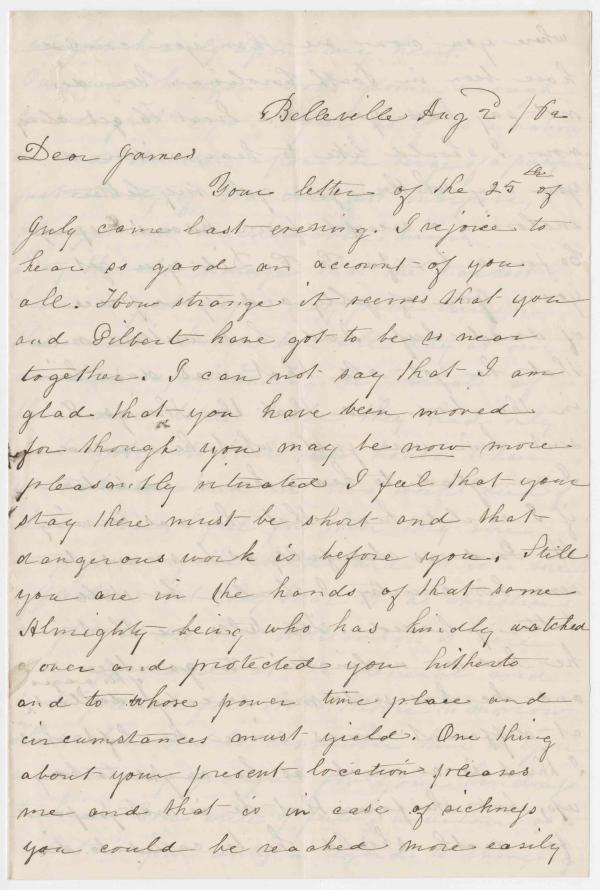 Belleville Aug 2d /62
Dear James
Your letter of the 25th of
July came last evening. I rejoice to
hear so good an account of you
all. How strange it seems that you
and Gilbert have got to be so near
together. I can not say that I am
glad that you have been moved
for though you may be now more
pleasantly situated I feel that your
stay there must be short and that
dangerous work is before you. Still
you are in the hands of that same
Almighty being who has kindly watched
over and protected you hitherto
and to whose power time place and
circumstances must yield. One thing
about your present location pleases
me and that is in case of sickness
you could be reached more easily